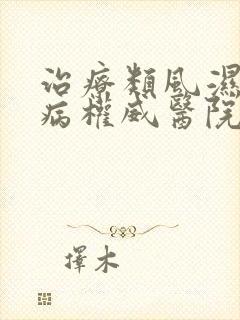 治療類風濕
病權威醫院
擇木